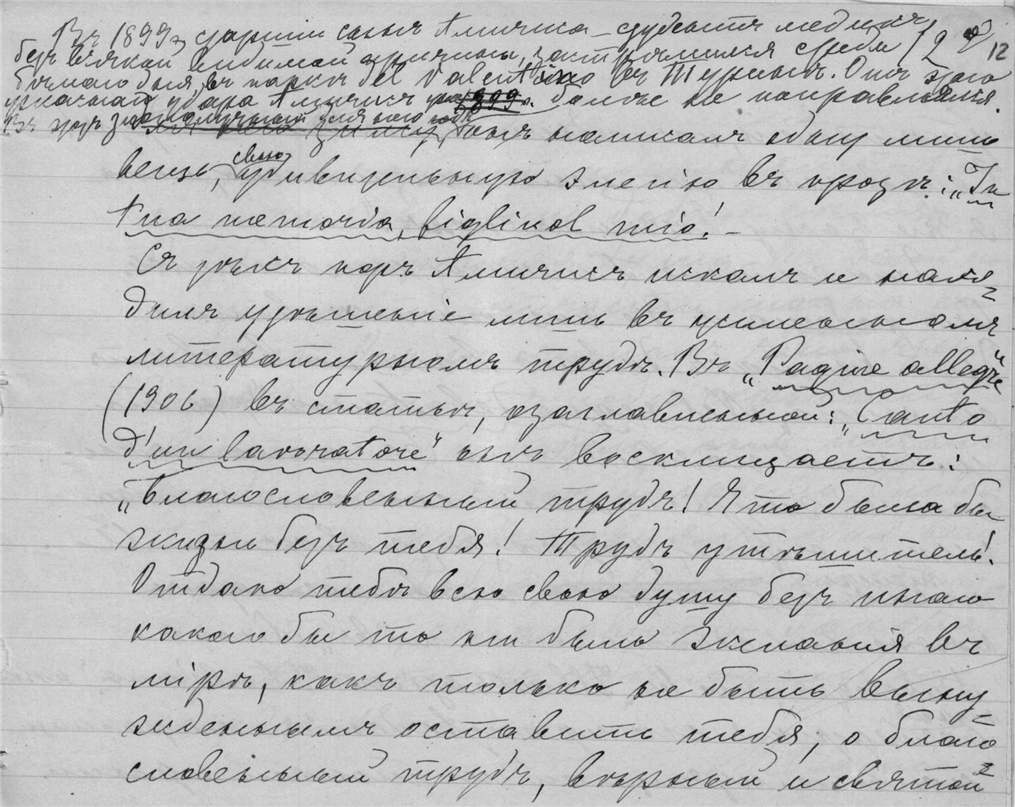 Въ 1899 г старшій сынъ Амичиса – студентъ медикъ 12
безъ всякой видимой причины, застрѣлился среди
бѣлаго дня, въ паркѣ del Valentino въ Туринѣ. Отъ этого
ужаснаго удара Амичисъ болѣе не поправлялся.
онъ написалъ одну лишь
вещь, свою удивительную элегію въ прозѣ: „In
tua memoria, figliuol mio!–
Съ тѣхъ поръ Амичисъ искалъ и нахо-
дилъ утѣшеніе лишь въ усиленномъ
литературномъ трудѣ. Въ „Pagine allegre“
(1906) въ статьѣ, озаглавленной: „Canto
d'un lavoratore“ онъ восклицаетъ:
„Благословенный трудъ! Что была бы
жизнь безъ тебя! Трудъ утѣшитель!
Отдаю тебѣ всю свою душу безъ инаго
какого бы то ни было желанія въ
мірѣ, какъ только не быть выну-
жденнымъ оставить тебя, о благо-
словенный трудъ, вѣрный и святой